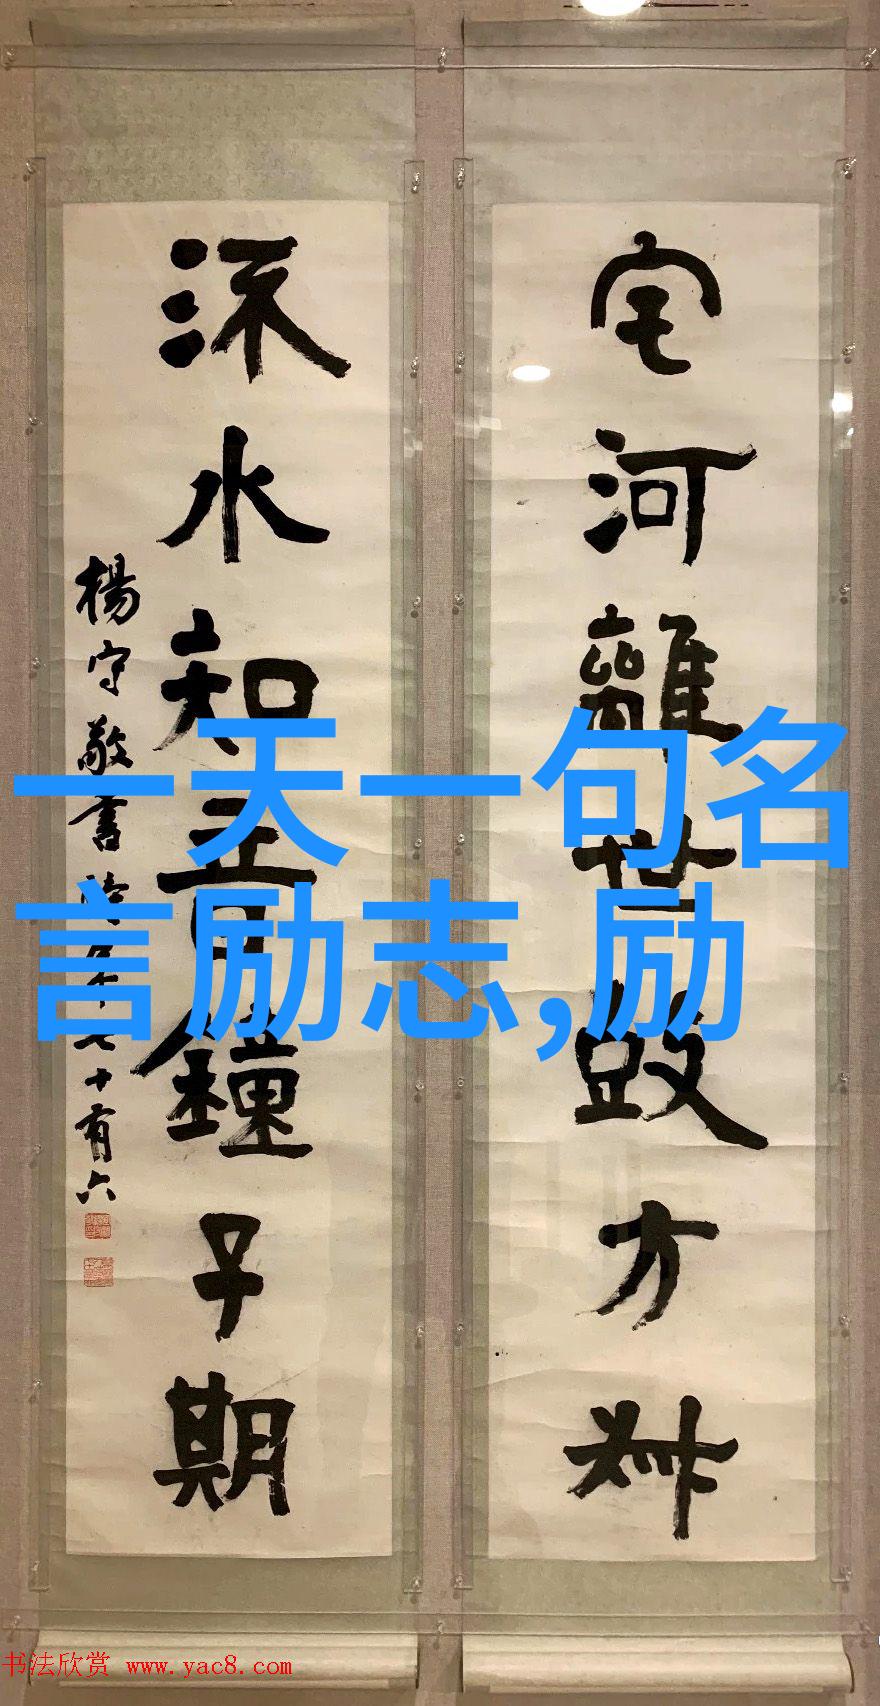 宅河離世毀方
水知音鐘子期
楊守敬書時年七十有六
一天一句名
言励志,励
书法欣赏 www.yac8.com